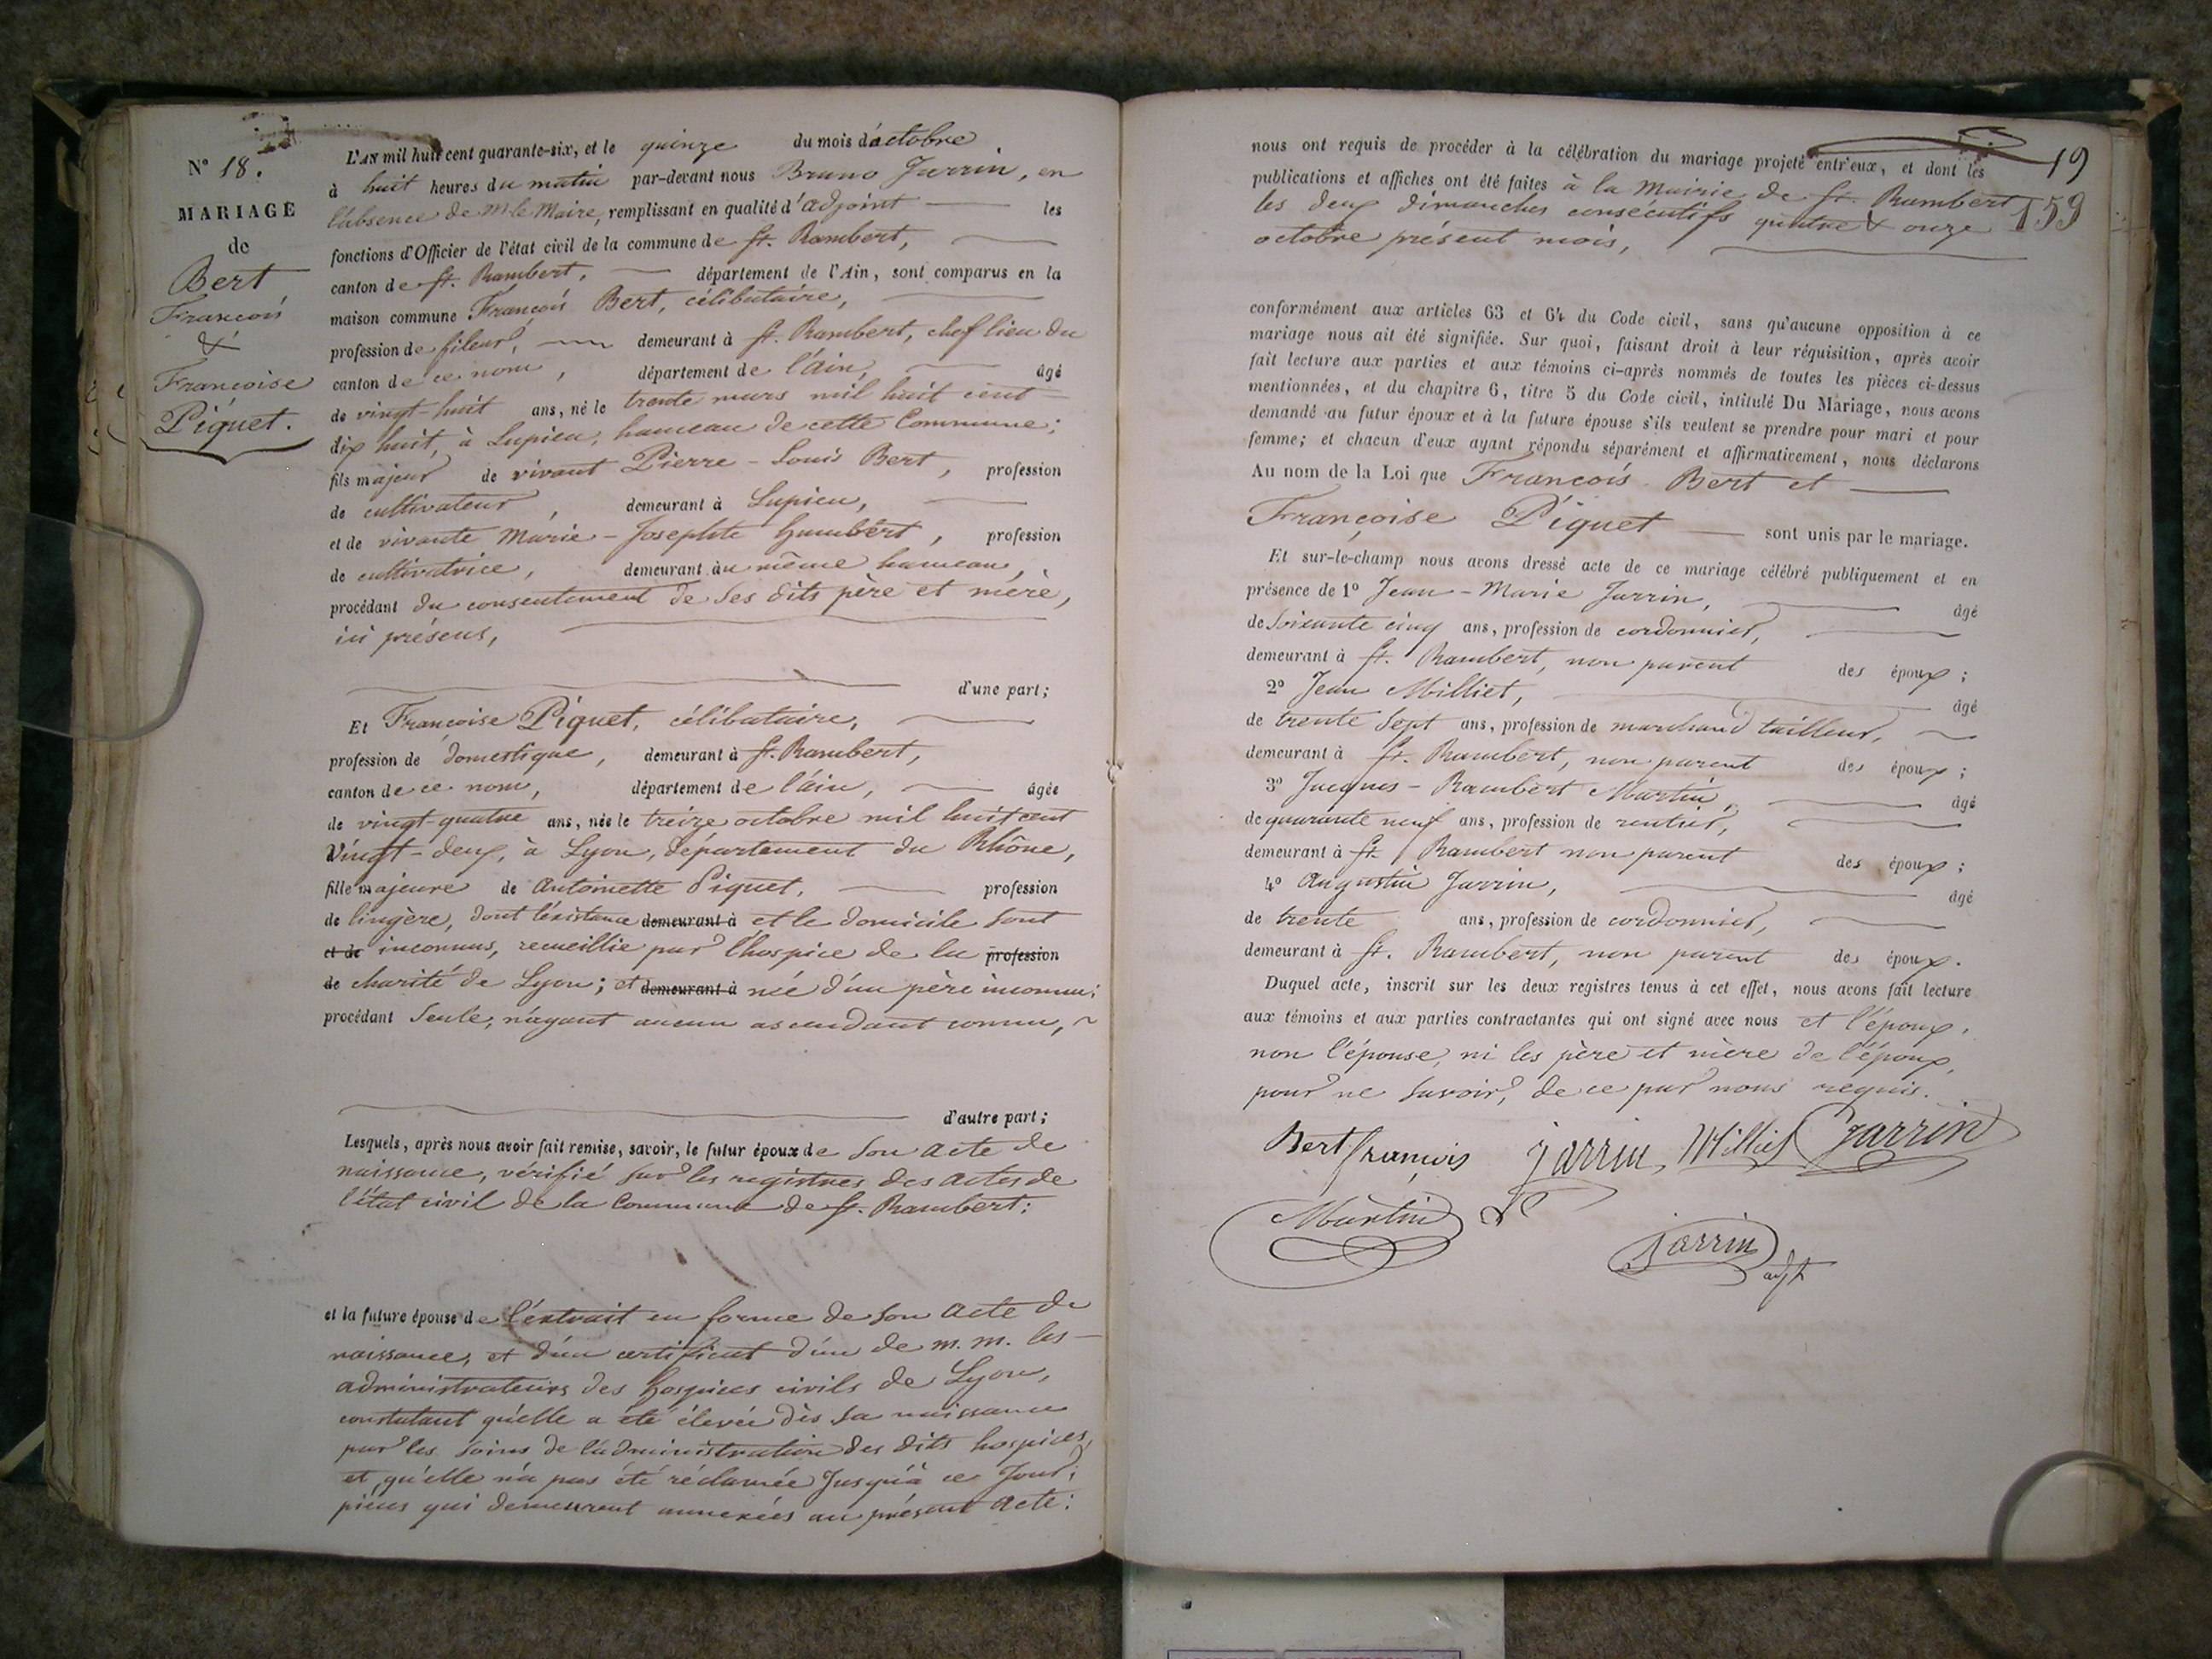 N° 18.
MARIAGE
de
Bert
François
&
Françoise
Piquet.
L'AN mil huit cent quarante-six, et le quinze du mois d'octobre
à huit heures du matin par-devant nous Bruno Jarrin, en
l'absence de Mr le Maire, remplissant en qualité d'adjoint les
fonctions d'Officier de l'état civil de la commune de St. Rambert,
canton de St. Rambert, département de l'Ain, sont comparus en la
maison commune François Bert, célibataire,
profession de fileur, demeurant à St. Rambert, chef lieu du
canton de ce nom, département de l'ain, âgé
de vingt-huit ans, né le trente mars mil huit cent
dix huit, à Lupieu, hameau de cette Commune;
fils majeur de vivant Pierre-Louis Bert, profession
de cultivateur, demeurant à Lupieu,
et de vivante Marie-Josephte humbert, profession
de cultivatrice, demeurant au même hameau,
procédant du consentement de ses dits père et mère,
ici présens,
d'une part;
Et Françoise Piquet, célibataire,
profession de domestique, demeurant à St. Rambert,
canton de ce nom, département de l'ain, âgée
de vingt-quatre ans, née le treize octobre mil huit cent
Vingt-deux, à Lyon, département du Rhône,
fille majeure de Antoinette Piquet, profession
de lingère, dont l'existence demeurant à et le domicile sont
et de inconnus, recueillie par l'hospice de la profession
de charité de Lyon; et demeurant à née d'un père inconnu;
procédant seule, n'ayant aucun ascendant connu,
d'autre part;
Lesquels, après nous avoir fait remise, savoir, le futur époux de son acte de
naissance, vérifié sur les registres des actes de
l'état civil de la Commune de St. Rambert;
et la future épouse de l'extrait en forme de son acte de
naissance, et d'un certificat d'un de m. m. les
administrateurs des hospices civils de Lyon,
constatant qu'elle a été élevée dès sa naissance
par les soins de l'administration des dits hospices,
et qu'elle n'a pas été réclamée jusqu'à ce jour;
pièces qui demeurent annexées au présent acte:
19
159
nous ont requis de procéder à la célébration du mariage projeté entr'eux, et dont les
publications et affiches ont été faites à la Mairie de St. Rambert
les deux dimanches consécutifs quatre & onze
octobre présent mois,
conformément aux articles 63 et 64 du Code civil, sans qu'aucune opposition à ce
mariage nous ait été signifiée. Sur quoi, faisant droit à leur réquisition, après avoir
fait lecture aux parties et aux témoins ci-après nommés de toutes les pièces ci-dessus
mentionnées, et du chapitre 6, titre 5 du Code civil, intitulé Du Mariage, nous avons
demandé au futur époux et à la future épouse s'ils veulent se prendre pour mari et pour
femme; et chacun d'eux ayant répondu séparément et affirmativement, nous déclarons
Au nom de la Loi que François Bert et
Françoise Piquet sont unis par le mariage.
Et sur-le-champ nous avons dressé acte de ce mariage célébré publiquement et en
présence de 1° Jean-Marie Jarrin, âgé
de soixante cinq ans, profession de cordonnier,
demeurant à St. Rambert, non parent des époux;
2° Jean Milliet, âgé
de trente sept ans, profession de marchand tailleur,
demeurant à St. Rambert, non parent des époux;
3° Jacques-Rambert Martin, âgé
de quarante neuf ans, profession de rentier,
demeurant à St Rambert non parent des époux;
4° Augustin Jarrin, âgé
de trente ans, profession de cordonnier,
demeurant à St. Rambert, non parent des époux.
Duquel acte, inscrit sur les deux registres tenus à cet effet, nous avons fait lecture
aux témoins et aux parties contractantes qui ont signé avec nous et l'époux,
non l'épouse, ni les père et mère de l'époux,
pour ne savoir, de ce par nous requis.
Bert françois Jarrin, Milliet Jarrin
Martin
jarrin
adjt